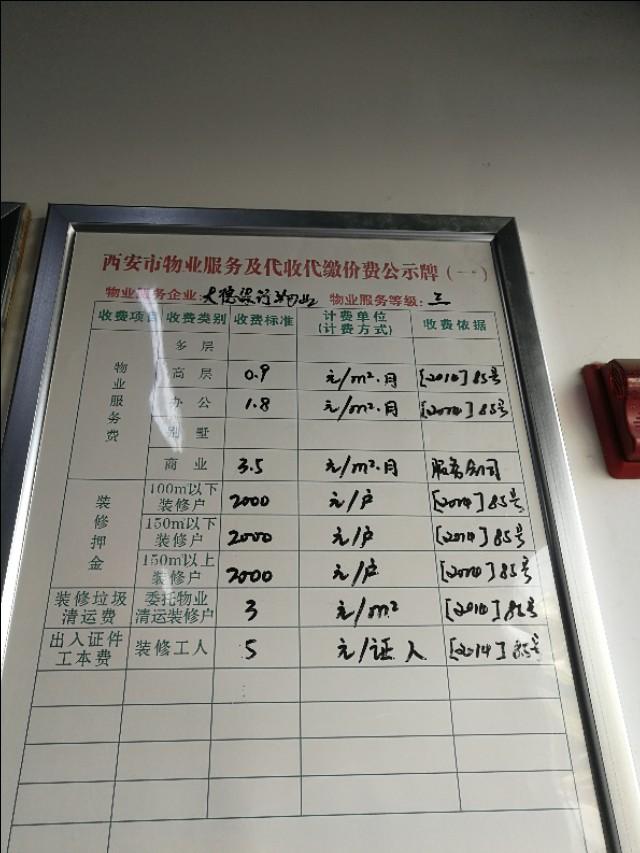 西安市物业服务及代收代缴价费公示牌（一）
物业服务企业：大德 物业 物业服务等级：三
收费项目 收费类别 收费标准 计费单位（计费方式） 收费依据
物业服务费 多层
高层 0.9 元/m²·月 [2014]85号
办公 1.8 元/m²·月 [2014]85号
别墅
商业 3.5 元/m²·月 服务合同
装修押金 100m以下装修户 2000 元/户 [2014]85号
150m以下装修户 2000 元/户 [2014]85号
150m以上装修户 2000 元/户 [2014]85号
装修垃圾清运费 委托物业清运装修户 3 元/m² [2014]85号
出入证件工本费 装修工人 5 元/证 人 [2014]85号